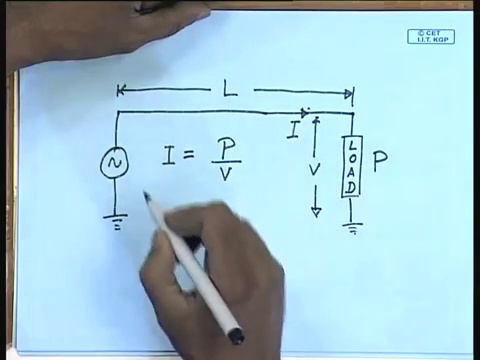 © CET
I.I.T. KGP
L
I
I = P / V
V
LOAD
P
~